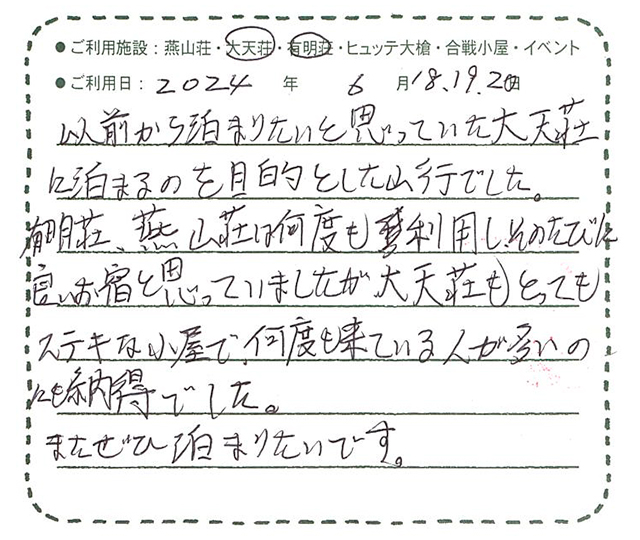 ●ご利用施設：燕山荘・大天荘・有明荘・ヒュッテ大槍・合戦小屋・イベント
●ご利用日：2024年 6月18.19.20日
以前から泊まりたいと思っていた大天荘
に泊まるのを目的とした山行でした。
有明荘、燕山荘は何度も利用し、そのたびに
良いお宿と思っていましたが大天荘もとっても
ステキな小屋で、何度も来ている人が多いの
にも納得でした。
またぜひ泊まりたいです。